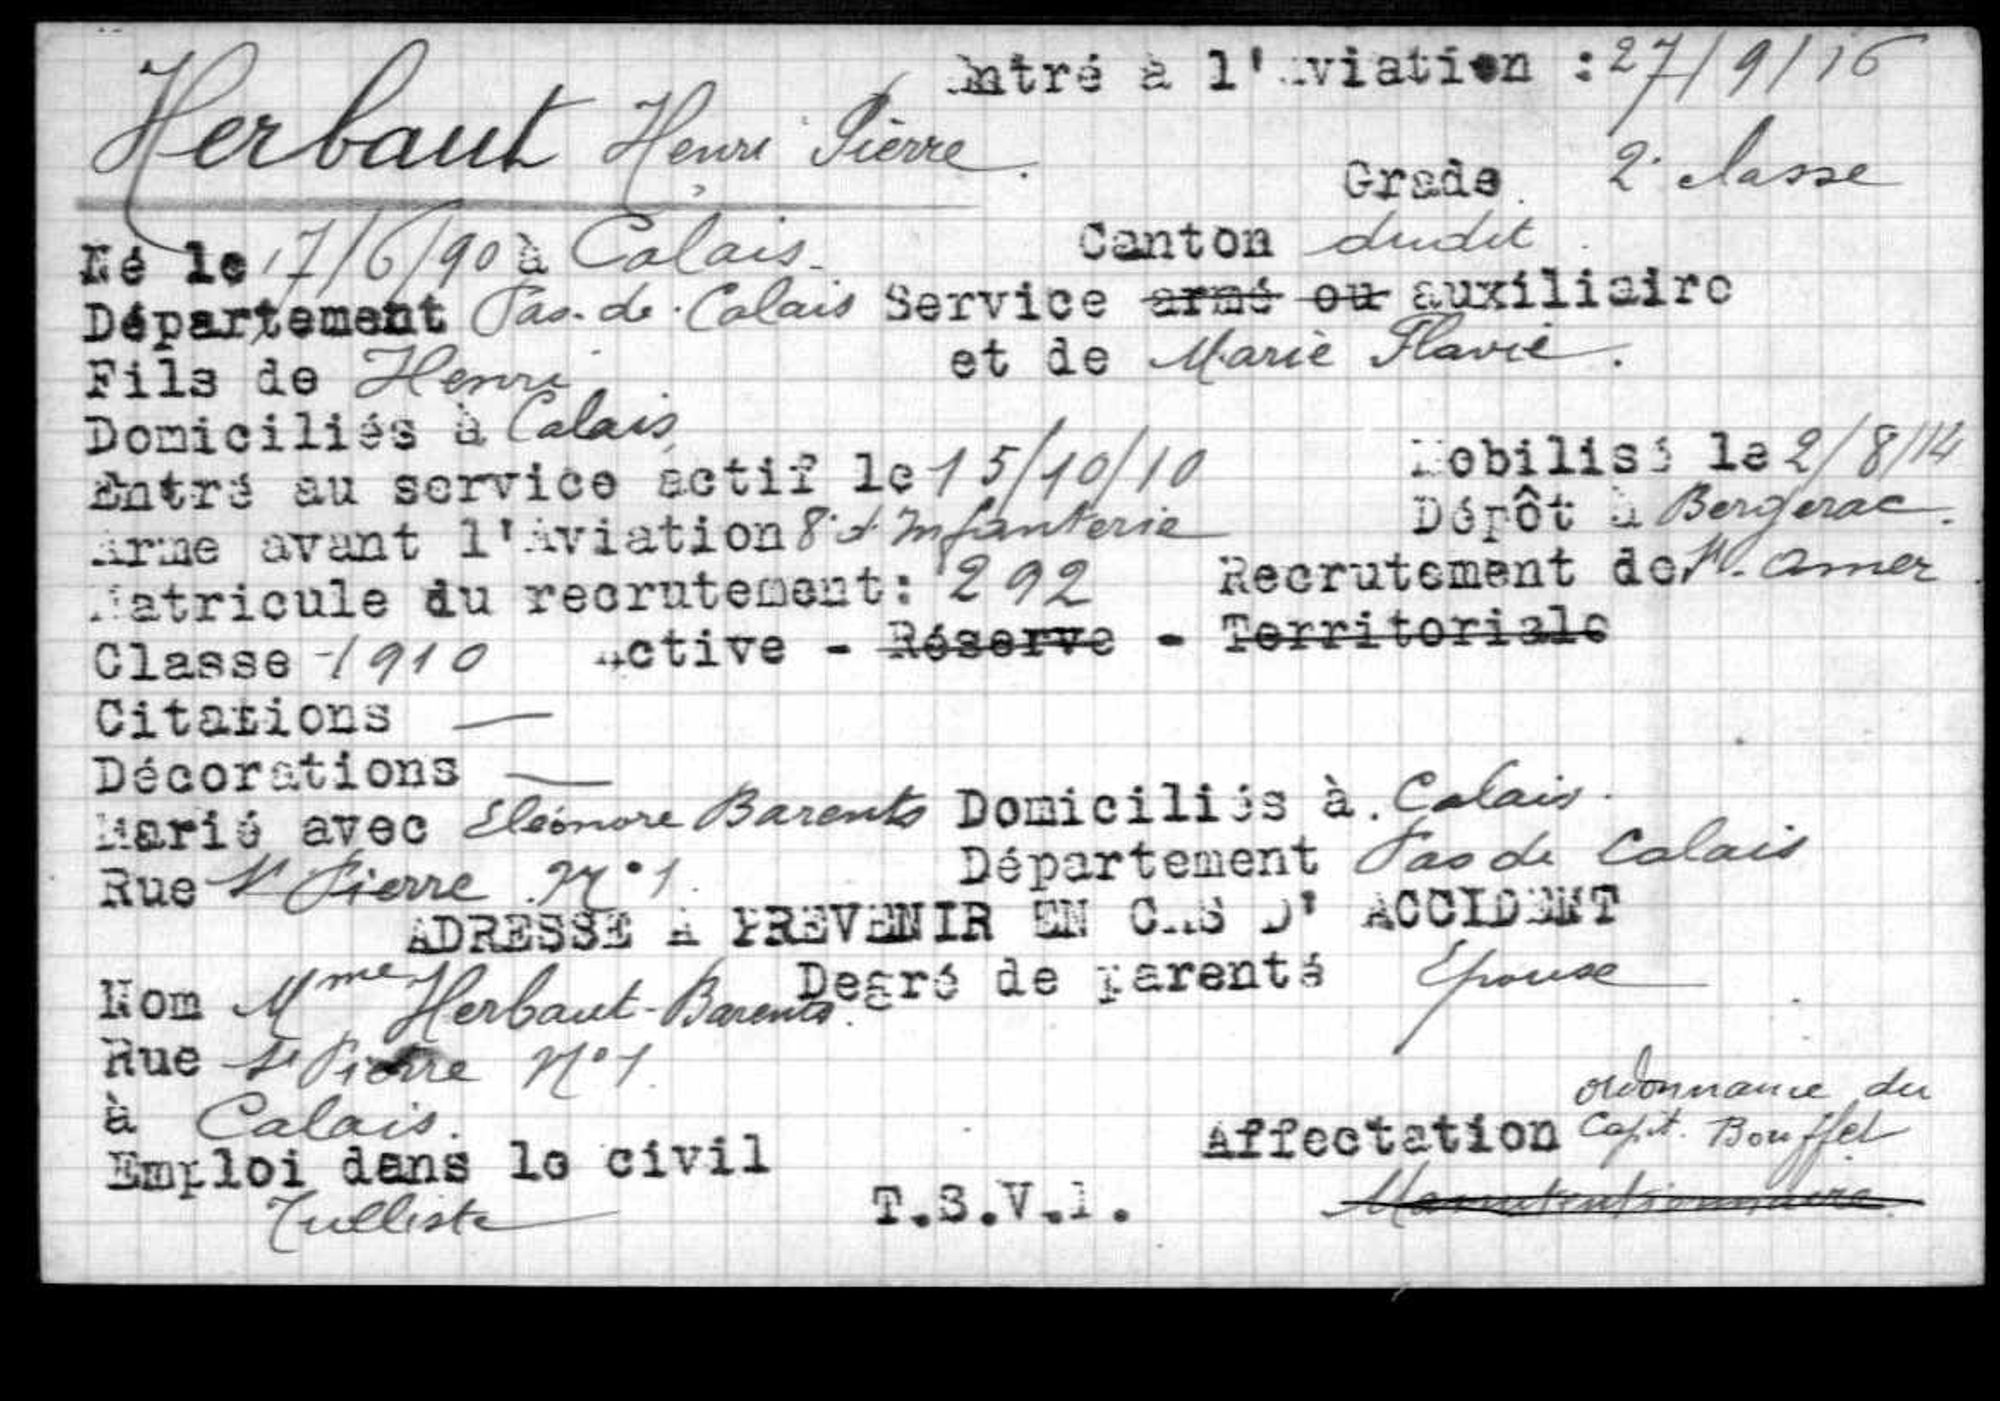 Entré à l'Aviation : 27/9/16
Herbaut Henri Pierre.
Grade 2e classe
Né le 17/6/90 à Calais. Canton dudit
Département Pas-de-Calais Service armé ou auxiliaire
Fils de Henri et de Marie Flavie.
Domiciliés à Calais
Entré au service actif le 15/10/10 Mobilisé le 2/8/14
Arme avant l'Aviation 8e d'Infanterie Dépôt à Bergerac.
Matricule du recrutement: 292 Recrutement de St. Omer
Classe 1910 Active - Réserve - Territoriale
Citations —
Décorations —
Marié avec Eléonore Barents Domiciliés à Calais.
Rue St Pierre N°1. Département Pas de Calais
ADRESSE A PREVENIR EN CAS D' ACCIDENT
Nom Mme Herbaut-Barents. Degré de parenté Epouse
Rue St Pierre N°1.
à Calais.
Emploi dans le civil
Tulliste
Affectation ordonnance du
Capit. Bouffet
Manutentionnaire.
T.S.V.P.